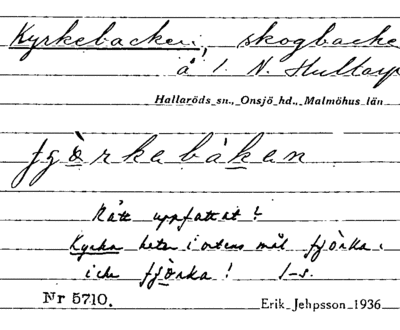 Kyrkebacken, skogbacke
å 1. N. Hultarp
Hallaröds sn., Onsjö hd., Malmöhus län
fjö̀rkebàken
Rätt uppfattat?
Kyrka heter i ortens mål fjörka,
icke fjörka! I-s.
Nr 5710.
Erik Jehpsson 1936